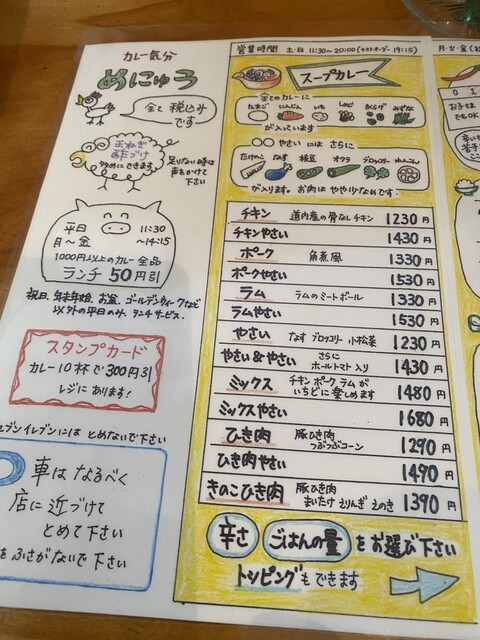 カレー気分
めにゅう
全て税込み
です
玉ねぎ
酢づけ
少なめにできます
足りない時は
声をかけて
下さい
平日 11:30
月～金 ～14:15
1000円以上のカレー全品
ランチ 50円引
祝日、年末年始、お盆、ゴールデンウィークなど
以外の平日のみ、ランチサービス。
スタンプカード
カレー10杯で300円引
レジにあります!
セブンイレブンには とめないで下さい
車は なるべく
店に近づけて
とめて下さい
をふさがないで下さい
営業時間 土・日 11:30～20:00(ラストオーダー 19:15)
スープカレー
全てのカレーに
たまご にんじん いも しめじ きくらげ みずな
が入っています
やさい には さらに
たけのこ なす 枝豆 オクラ ブロッコリー れんこん
が入ります。お肉はやや少なめです.
チキン 道内産の骨なしチキン 1230円
チキンやさい 1430円
ポーク 角煮風 1330円
ポークやさい 1530円
ラム ラムのミートボール 1330円
ラムやさい 1530円
やさい なす ブロッコリー 小松菜 1230円
やさい&やさい さらに ホールトマト入り 1430円
ミックス チキン ポーク ラムが いちどに楽しめます 1480円
ミックスやさい 1680円
ひき肉 豚ひき肉 つぶつぶコーン 1290円
ひき肉やさい 1490円
きのこひき肉 豚ひき肉 まいたけ えりんぎ えのき 1390円
辛さ ごはんの量 をお選び下さい
トッピングもできます
月・火・金(祝
0 1
お子様
でもOK